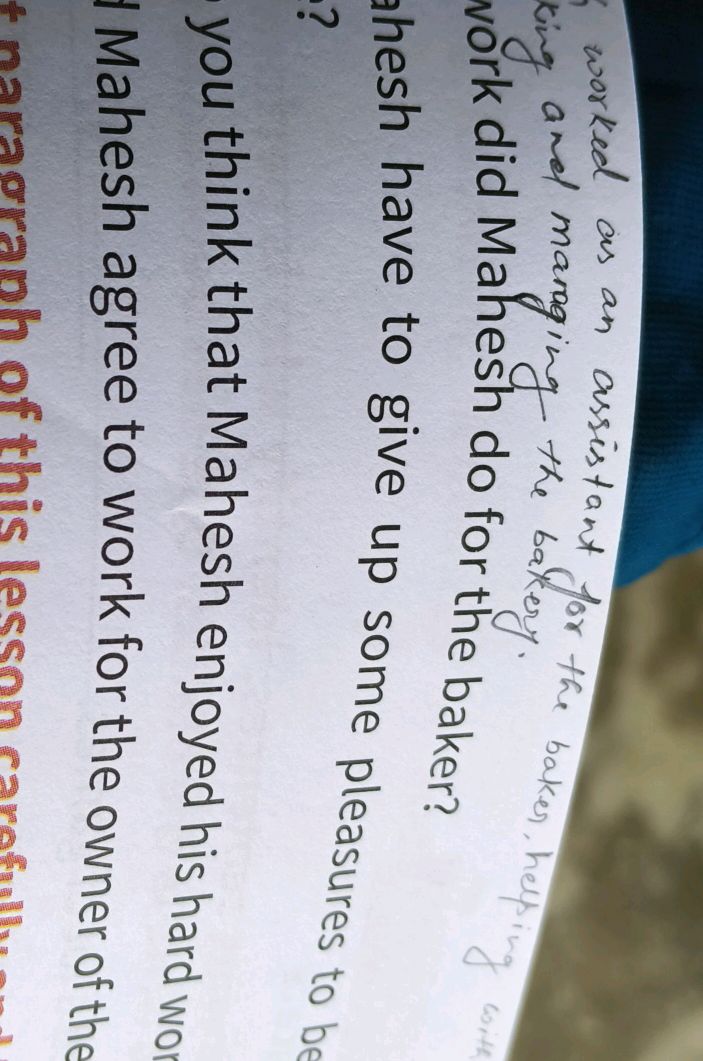 worked as an assistant for the baker, helping with
king and managing the bakery.
work did Mahesh do for the baker?
ahesh have to give up some pleasures to be
?
you think that Mahesh enjoyed his hard wor
d Mahesh agree to work for the owner of the
t paragraph of this lesson carefully and